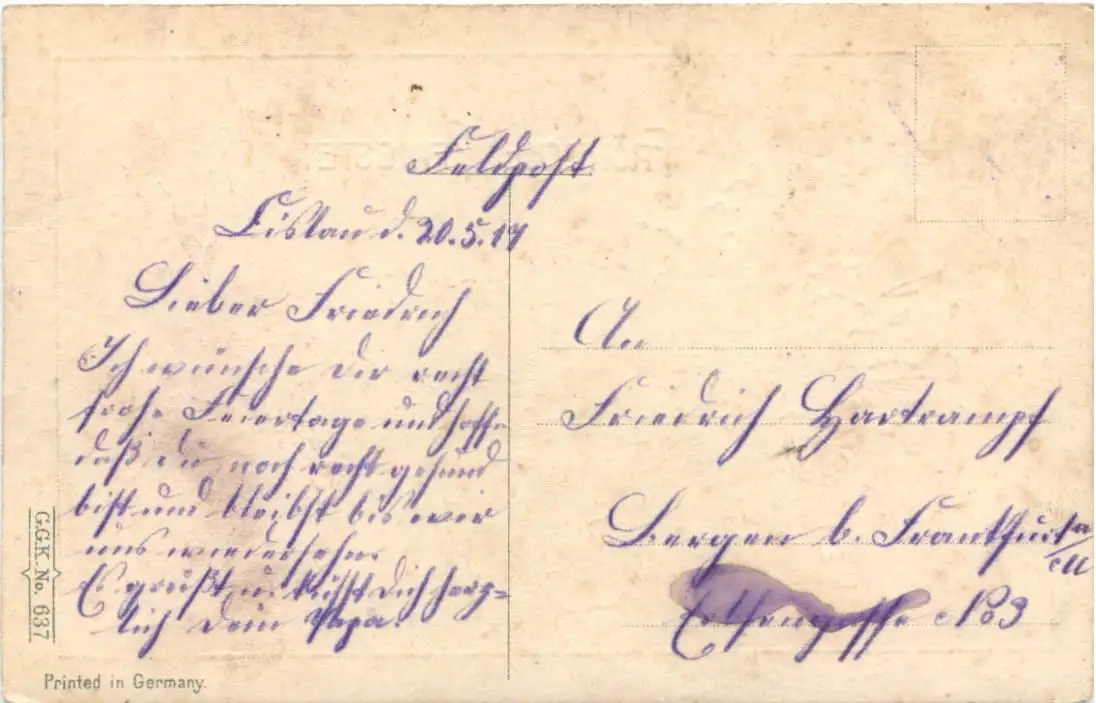 Feldpost
Lislau d. 20.5.17
Lieber Friedrich
Ich wünsche Dir recht
frohe Feiertage und hoffe
daß du noch recht gesund
bist und bleibst bis wir
uns wiedersehn.
Es grüßt u. küsst Dich herz=
lich dein Papa.
An
Friedrich Hartrampf
Bergen b. Frankfurt a/M
No 3
G.G.K. No. 637
Printed in Germany.